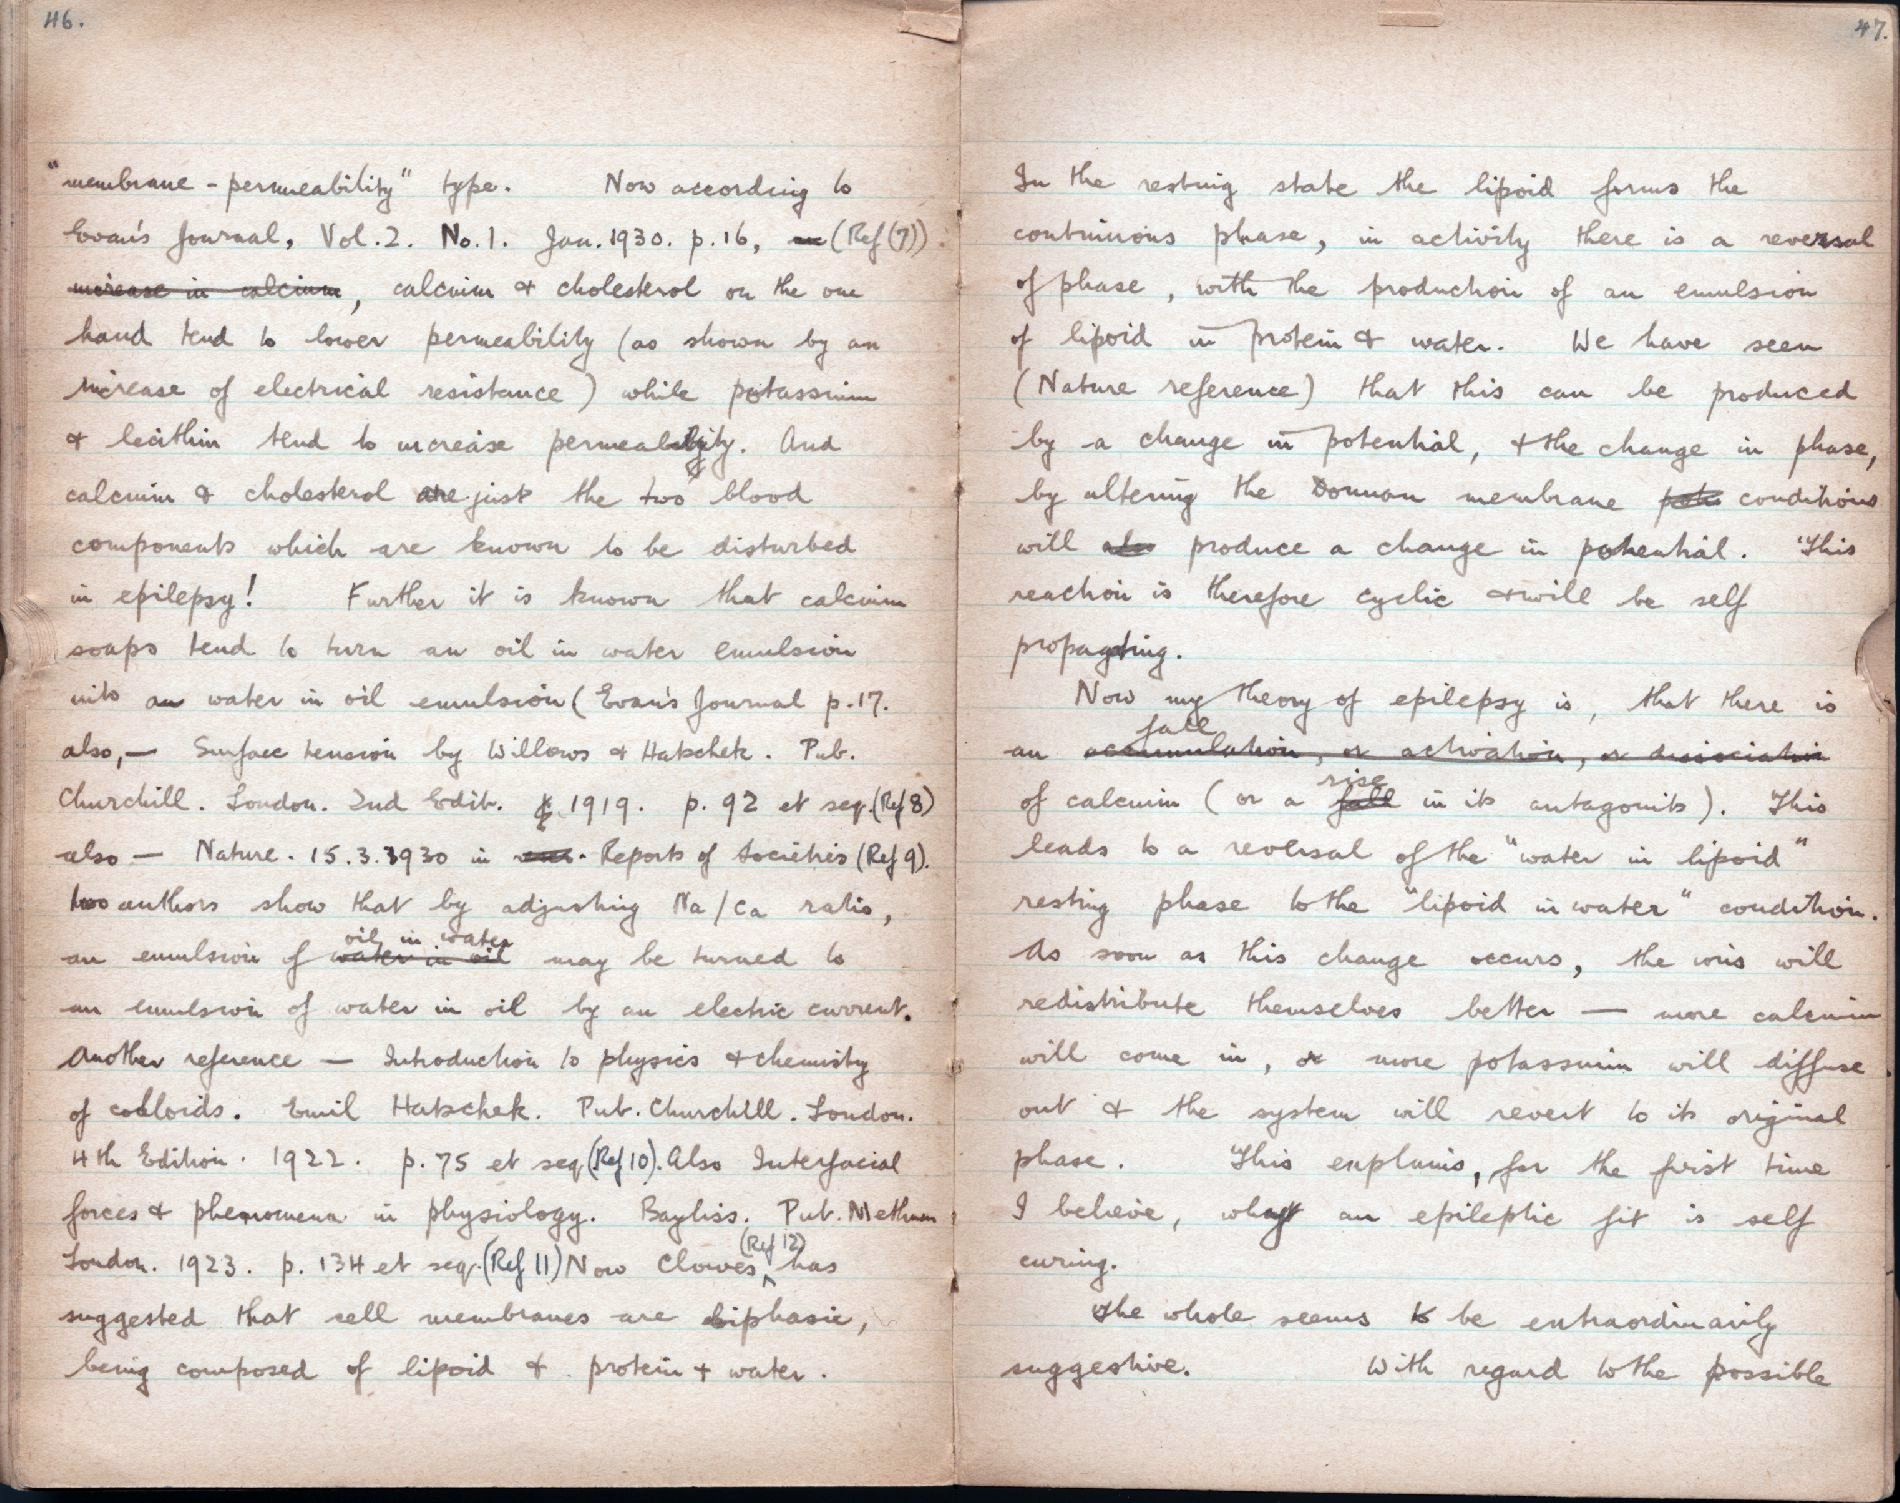 46.
"membrane-permeability" type. Now according to
Evan's Journal, Vol.2. No.1. Jan.1930. p.16, an (Ref (7))
increase in calcium, calcium & cholesterol on the one
hand tend to lower permeability (as shown by an
increase of electrical resistance) while potassium
& lecithin tend to increase permeability. And
calcium & cholesterol are just the two blood
components which are known to be disturbed
in epilepsy! Further it is known that calcium
soaps tend to turn an oil in water emulsion
into an water in oil emulsion (Evan's Journal p.17.
also,— Surface tension by Willows & Hatschek. Pub.
Churchill. London. 2nd Edit. 1919. p. 92 et seq. (Ref 8)
also — Nature. 15.3.1930 in Reports of Societies (Ref 9).
two authors show that by adjusting Na/Ca ratio,
oil in water
an emulsion of water in oil may be turned to
an emulsion of water in oil by an electric current.
Another reference — Introduction to physics & chemistry
of colloids. Emil Hatschek. Pub. Churchill. London.
4th Edition. 1922. p.75 et seq (Ref 10). Also Interfacial
forces & phenomena in physiology. Bayliss. Pub. Methuen
(Ref 12)
London. 1923. p. 134 et seq. (Ref 11) Now Clowes ^ has
suggested that cell membranes are biphasic,
being composed of lipoid & protein + water.
47.
In the resting state the lipoid forms the
continuous phase, in activity there is a reversal
of phase, with the production of an emulsion
of lipoid in protein & water. We have seen
(Nature reference) that this can be produced
by a change in potential, & the change in phase,
by altering the Donnan membrane pot conditions
will also produce a change in potential. This
reaction is therefore cyclic & will be self
propagating.
Now my theory of epilepsy is, that there is
fall
an accumulation, or activation, or dissociation
rise
of calcium (or a fall in its antagonists). This
leads to a reversal of the "water in lipoid"
resting phase to the "lipoid in water" condition.
As soon as this change occurs, the ions will
redistribute themselves better — more calcium
will come in, or more potassium will diffuse
out & the system will revert to its original
phase. This explains, for the first time
I believe, why an epileptic fit is self
curing.
The whole seems to be extraordinarily
suggestive. With regard to the possible